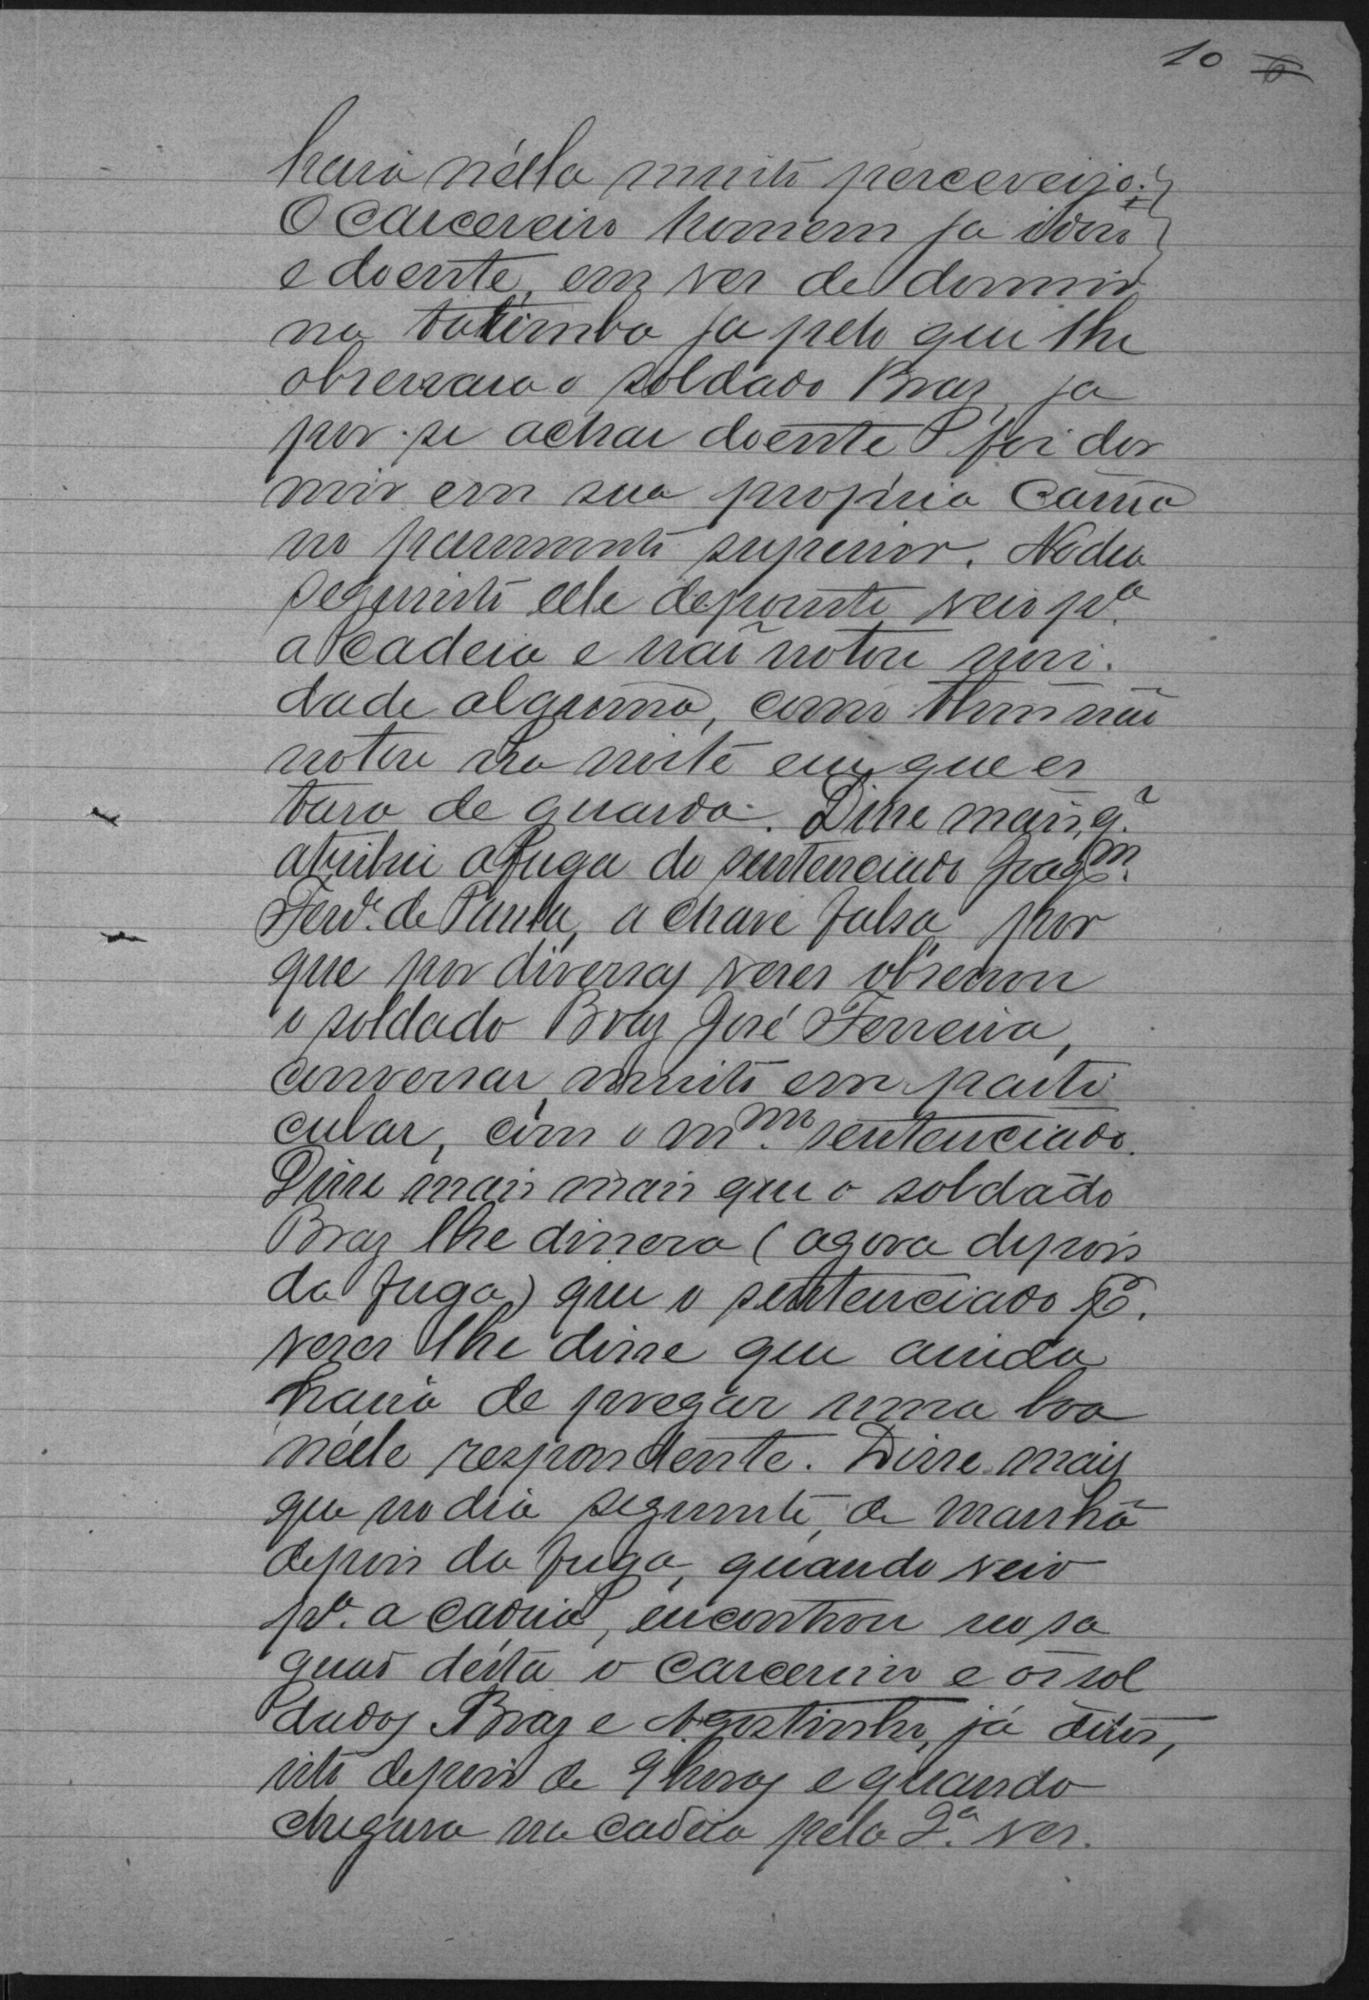 10 6
havia nélla muito percevejo.
O carcereiro homem ja idoso
e doente, em ves de dormir
na tarimba ja pelo que lhe
observara o soldado Braz, ja
por se achar doente foi dor
mir em sua propria cama
no pavimento superior. No dia
seguinte elle depoente veio pª.
a cadeia e não notou novi-
dade alguma, como tbem não
notou na noite em que es
tava de guarda. Disse mais, q.
atribui a fuga do sentenciado Joaqm.
Ferdª. de Paula, a chave falsa, por
que por diversas veses observou
o soldado Braz José Ferreira,
conversar, muito em parti
cular, com o mmo. sentenciado.
Disse mais mais que o soldado
Braz lhe dissera (agora depois
da fuga) que o sentenciado
veses lhe disse que ainda
havia de pregar uma boa
nélle respondente. Disse mais
que no dia seguinte, de manhã
depois da fuga, quando veio
pª. a cadeia, encontrou no sa
guão désta o carcereiro e os sol
dados Braz e Agostinho, já ditos,
isto depois de 9 horas e quando
chegara na cadeia pela 2ª. ves.